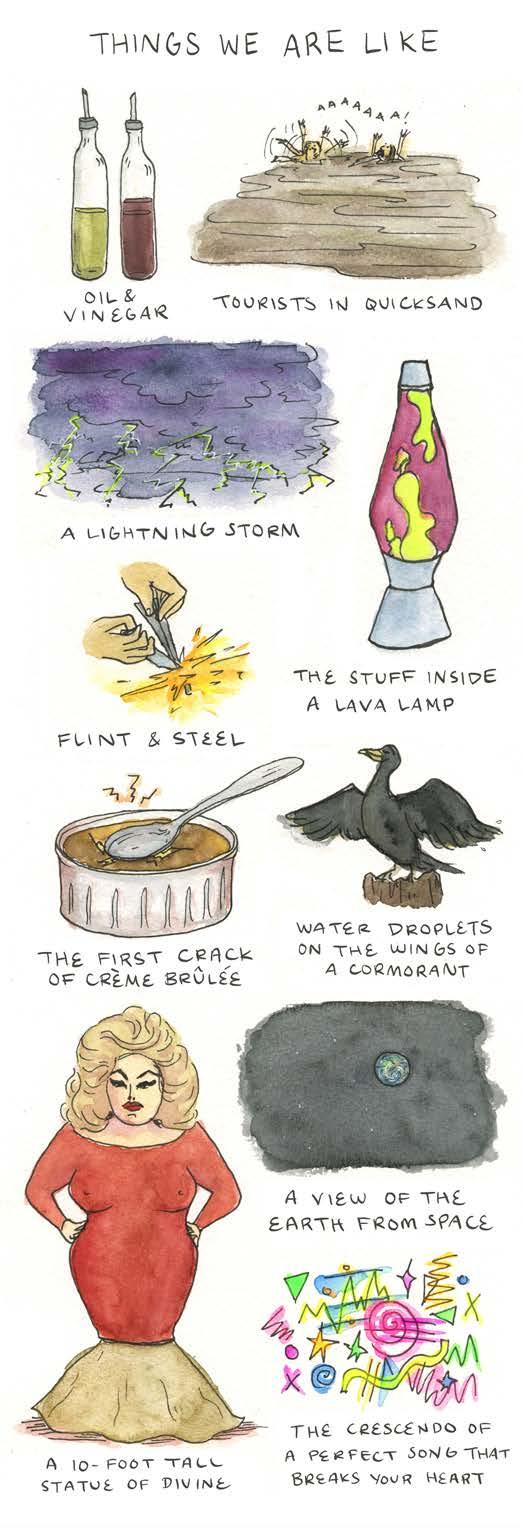 THINGS WE ARE LIKE
AAAAAAA!
OIL &
VINEGAR
TOURISTS IN QUICKSAND
A LIGHTNING STORM
THE STUFF INSIDE
A LAVA LAMP
FLINT & STEEL
THE FIRST CRACK
OF CRÈME BRÛLÉE
WATER DROPLETS
ON THE WINGS OF
A CORMORANT
A VIEW OF THE
EARTH FROM SPACE
A 10-FOOT TALL
STATUE OF DIVINE
THE CRESCENDO OF
A PERFECT SONG THAT
BREAKS YOUR HEART